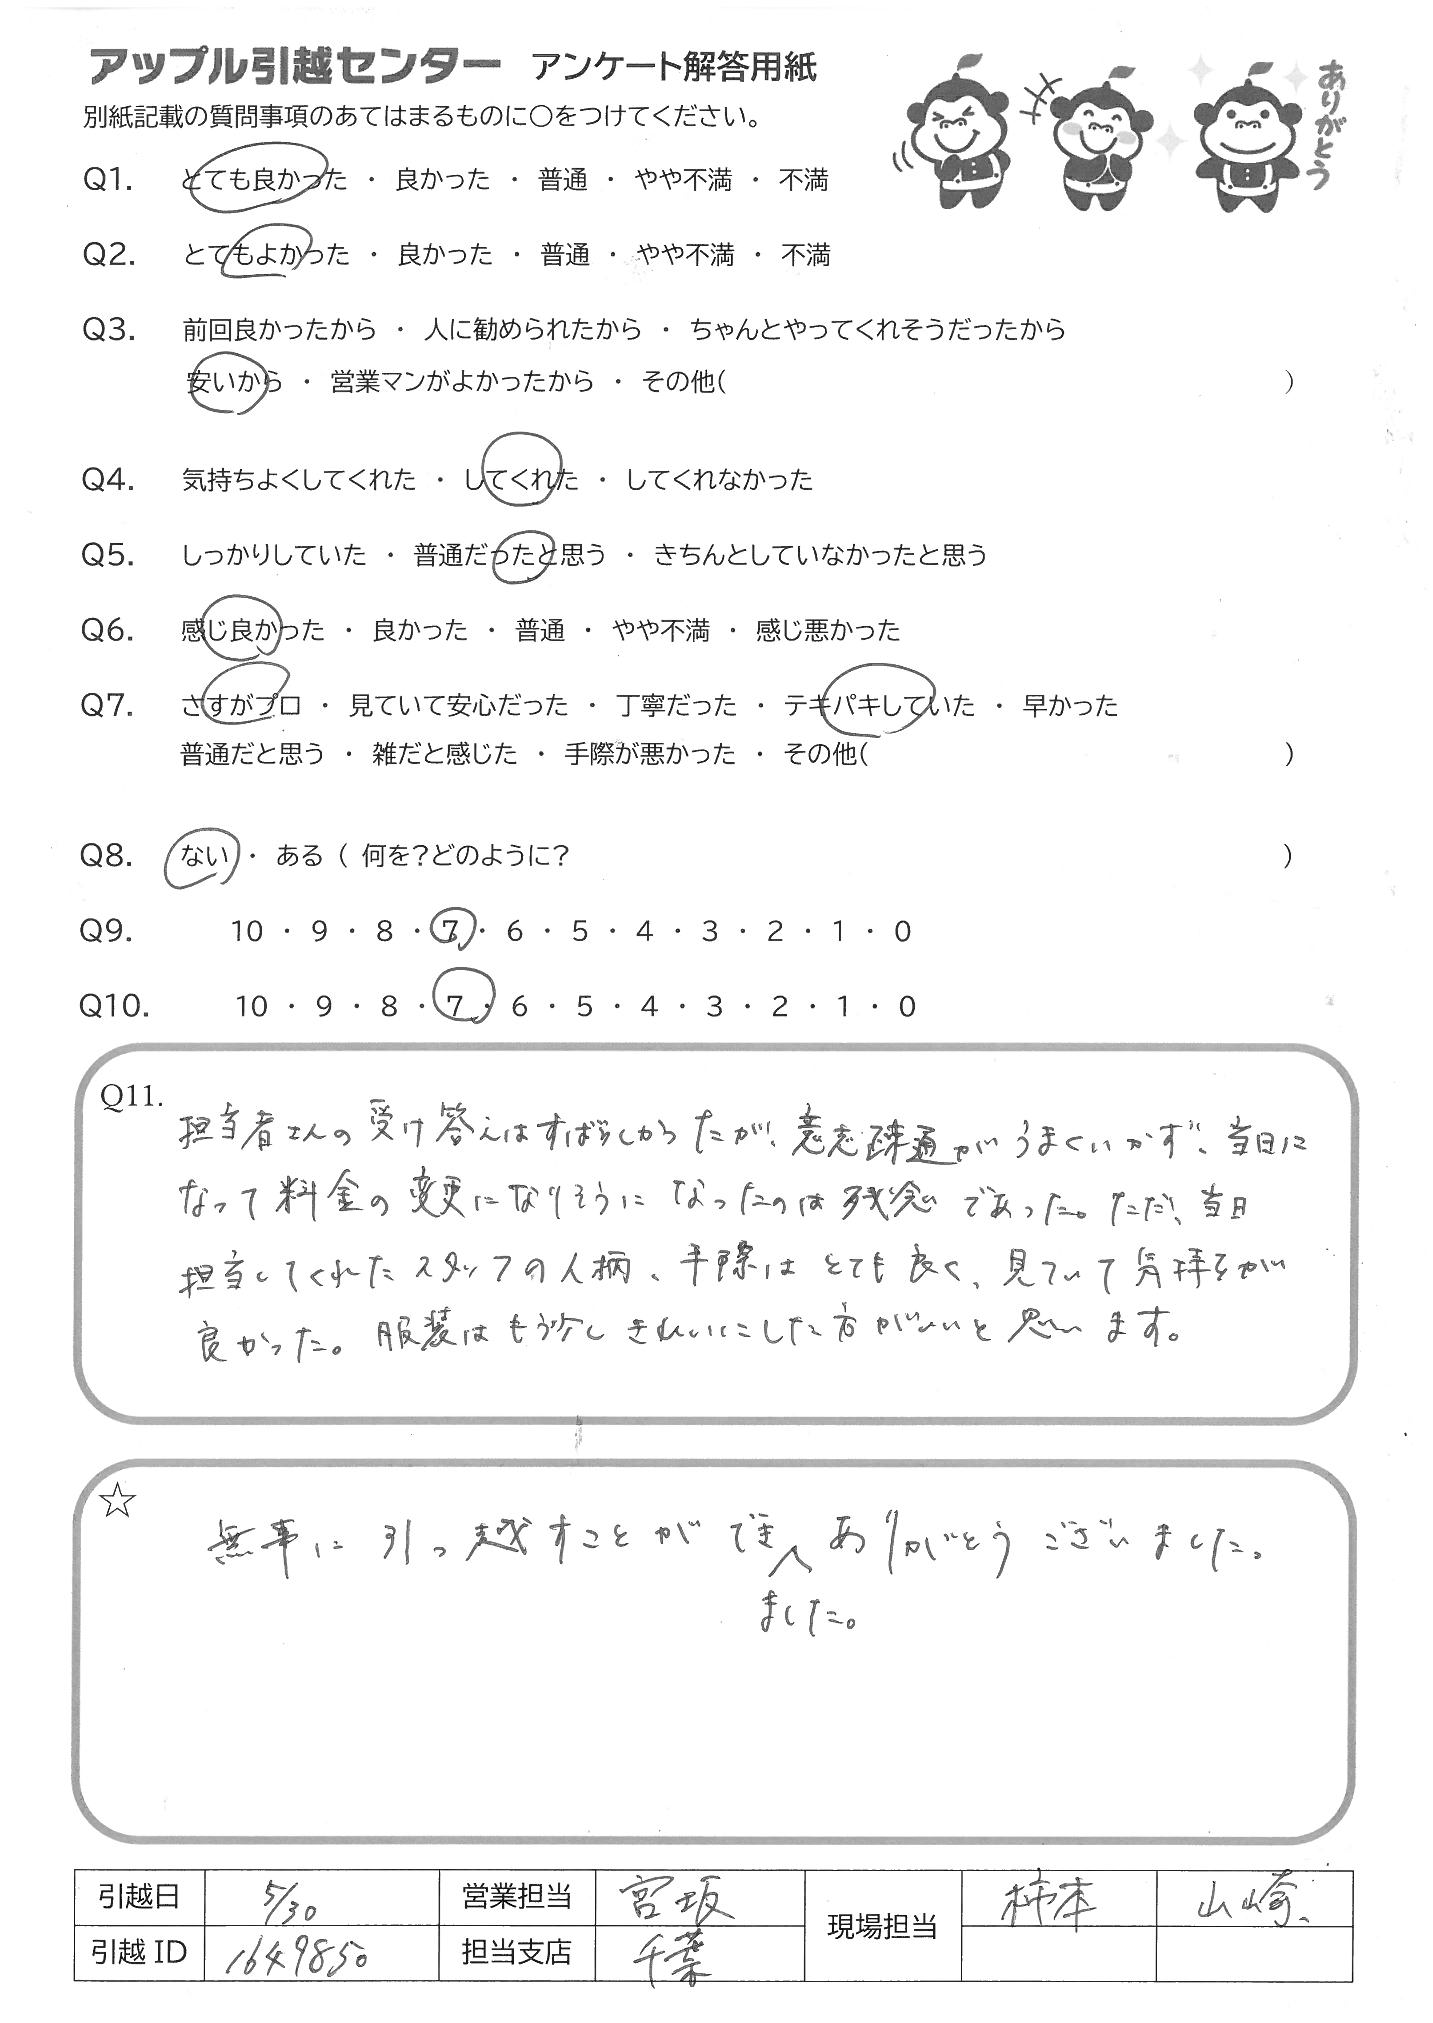 アップル引越センター アンケート解答用紙
ありがとう
別紙記載の質問事項のあてはまるものに〇をつけてください。
Q1. とても良かった ・ 良かった ・ 普通 ・ やや不満 ・ 不満
Q2. とてもよかった ・ 良かった ・ 普通 ・ やや不満 ・ 不満
Q3. 前回良かったから ・ 人に勧められたから ・ ちゃんとやってくれそうだったから
安いから ・ 営業マンがよかったから ・ その他( )
Q4. 気持ちよくしてくれた ・ してくれた ・ してくれなかった
Q5. しっかりしていた ・ 普通だったと思う ・ きちんとしていなかったと思う
Q6. 感じ良かった ・ 良かった ・ 普通 ・ やや不満 ・ 感じ悪かった
Q7. さすがプロ ・ 見ていて安心だった ・ 丁寧だった ・ テキパキしていた ・ 早かった
普通だと思う ・ 雑だと感じた ・ 手際が悪かった ・ その他( )
Q8. ない ・ ある ( 何を?どのように? )
Q9. 10 ・ 9 ・ 8 ・ 7 ・ 6 ・ 5 ・ 4 ・ 3 ・ 2 ・ 1 ・ 0
Q10. 10 ・ 9 ・ 8 ・ 7 ・ 6 ・ 5 ・ 4 ・ 3 ・ 2 ・ 1 ・ 0
Q11.
担当者さんの受け答えはすばらしかったが、意志疎通がうまくいかず、当日に
なって料金の変更になりそうになったのは残念であった。ただ、当日
担当してくれたスタッフの人柄、手際はとても良く、見ていて気持ちが
良かった。服装はもう少しきれいにした方がいいと思います。
☆
無事に引っ越すことができ ありがとうございました。
ました。
引越日 5/30 営業担当 宮坂 現場担当 柿本 山崎
引越ID 1649850 担当支店 千葉